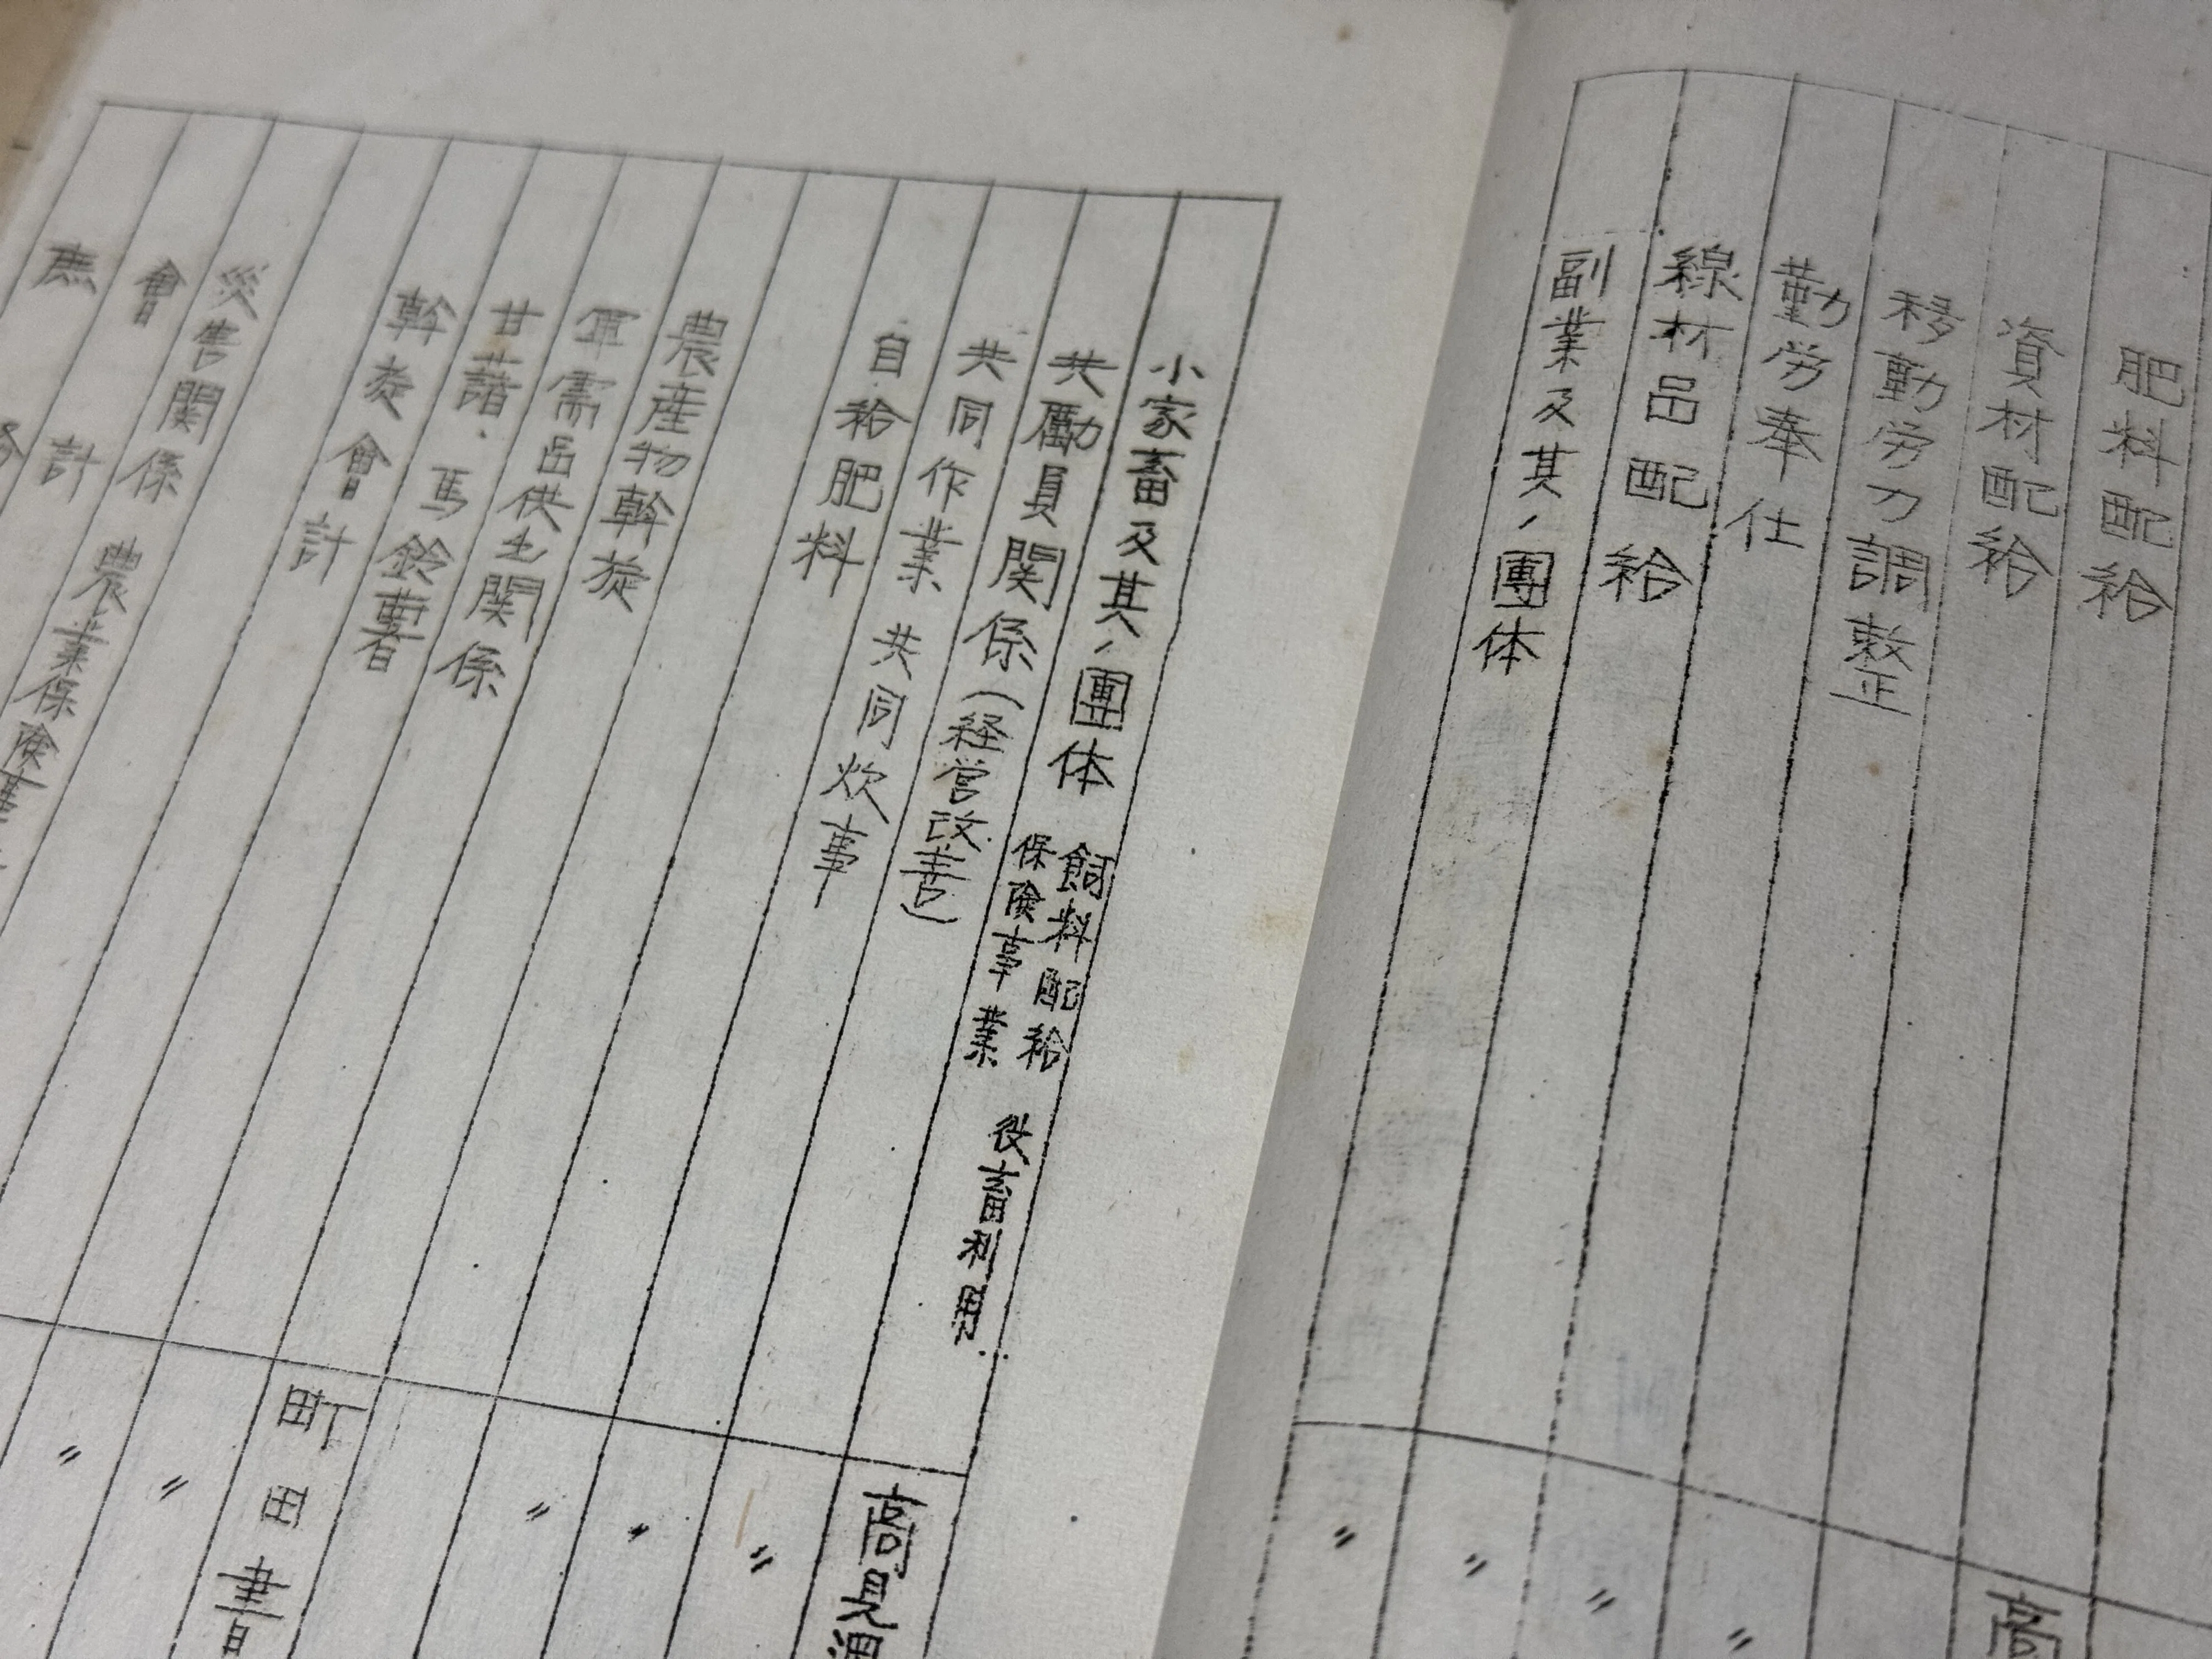 肥料配給
資材配給
移動労力調整
勤労奉仕
線材品配給
副業及其ノ團体
高
〃
〃
〃
〃
小家畜及其ノ團体 飼料配給 役畜利用
保険事業
共励員関係(経営改善)
共同作業 共同炊事
自給肥料
農産物斡旋
軍需品供出関係
甘藷・馬鈴薯
斡旋會計
災害関係 農業保険
會計
庶務
高見澤
〃
〃
〃
町田書
〃
〃